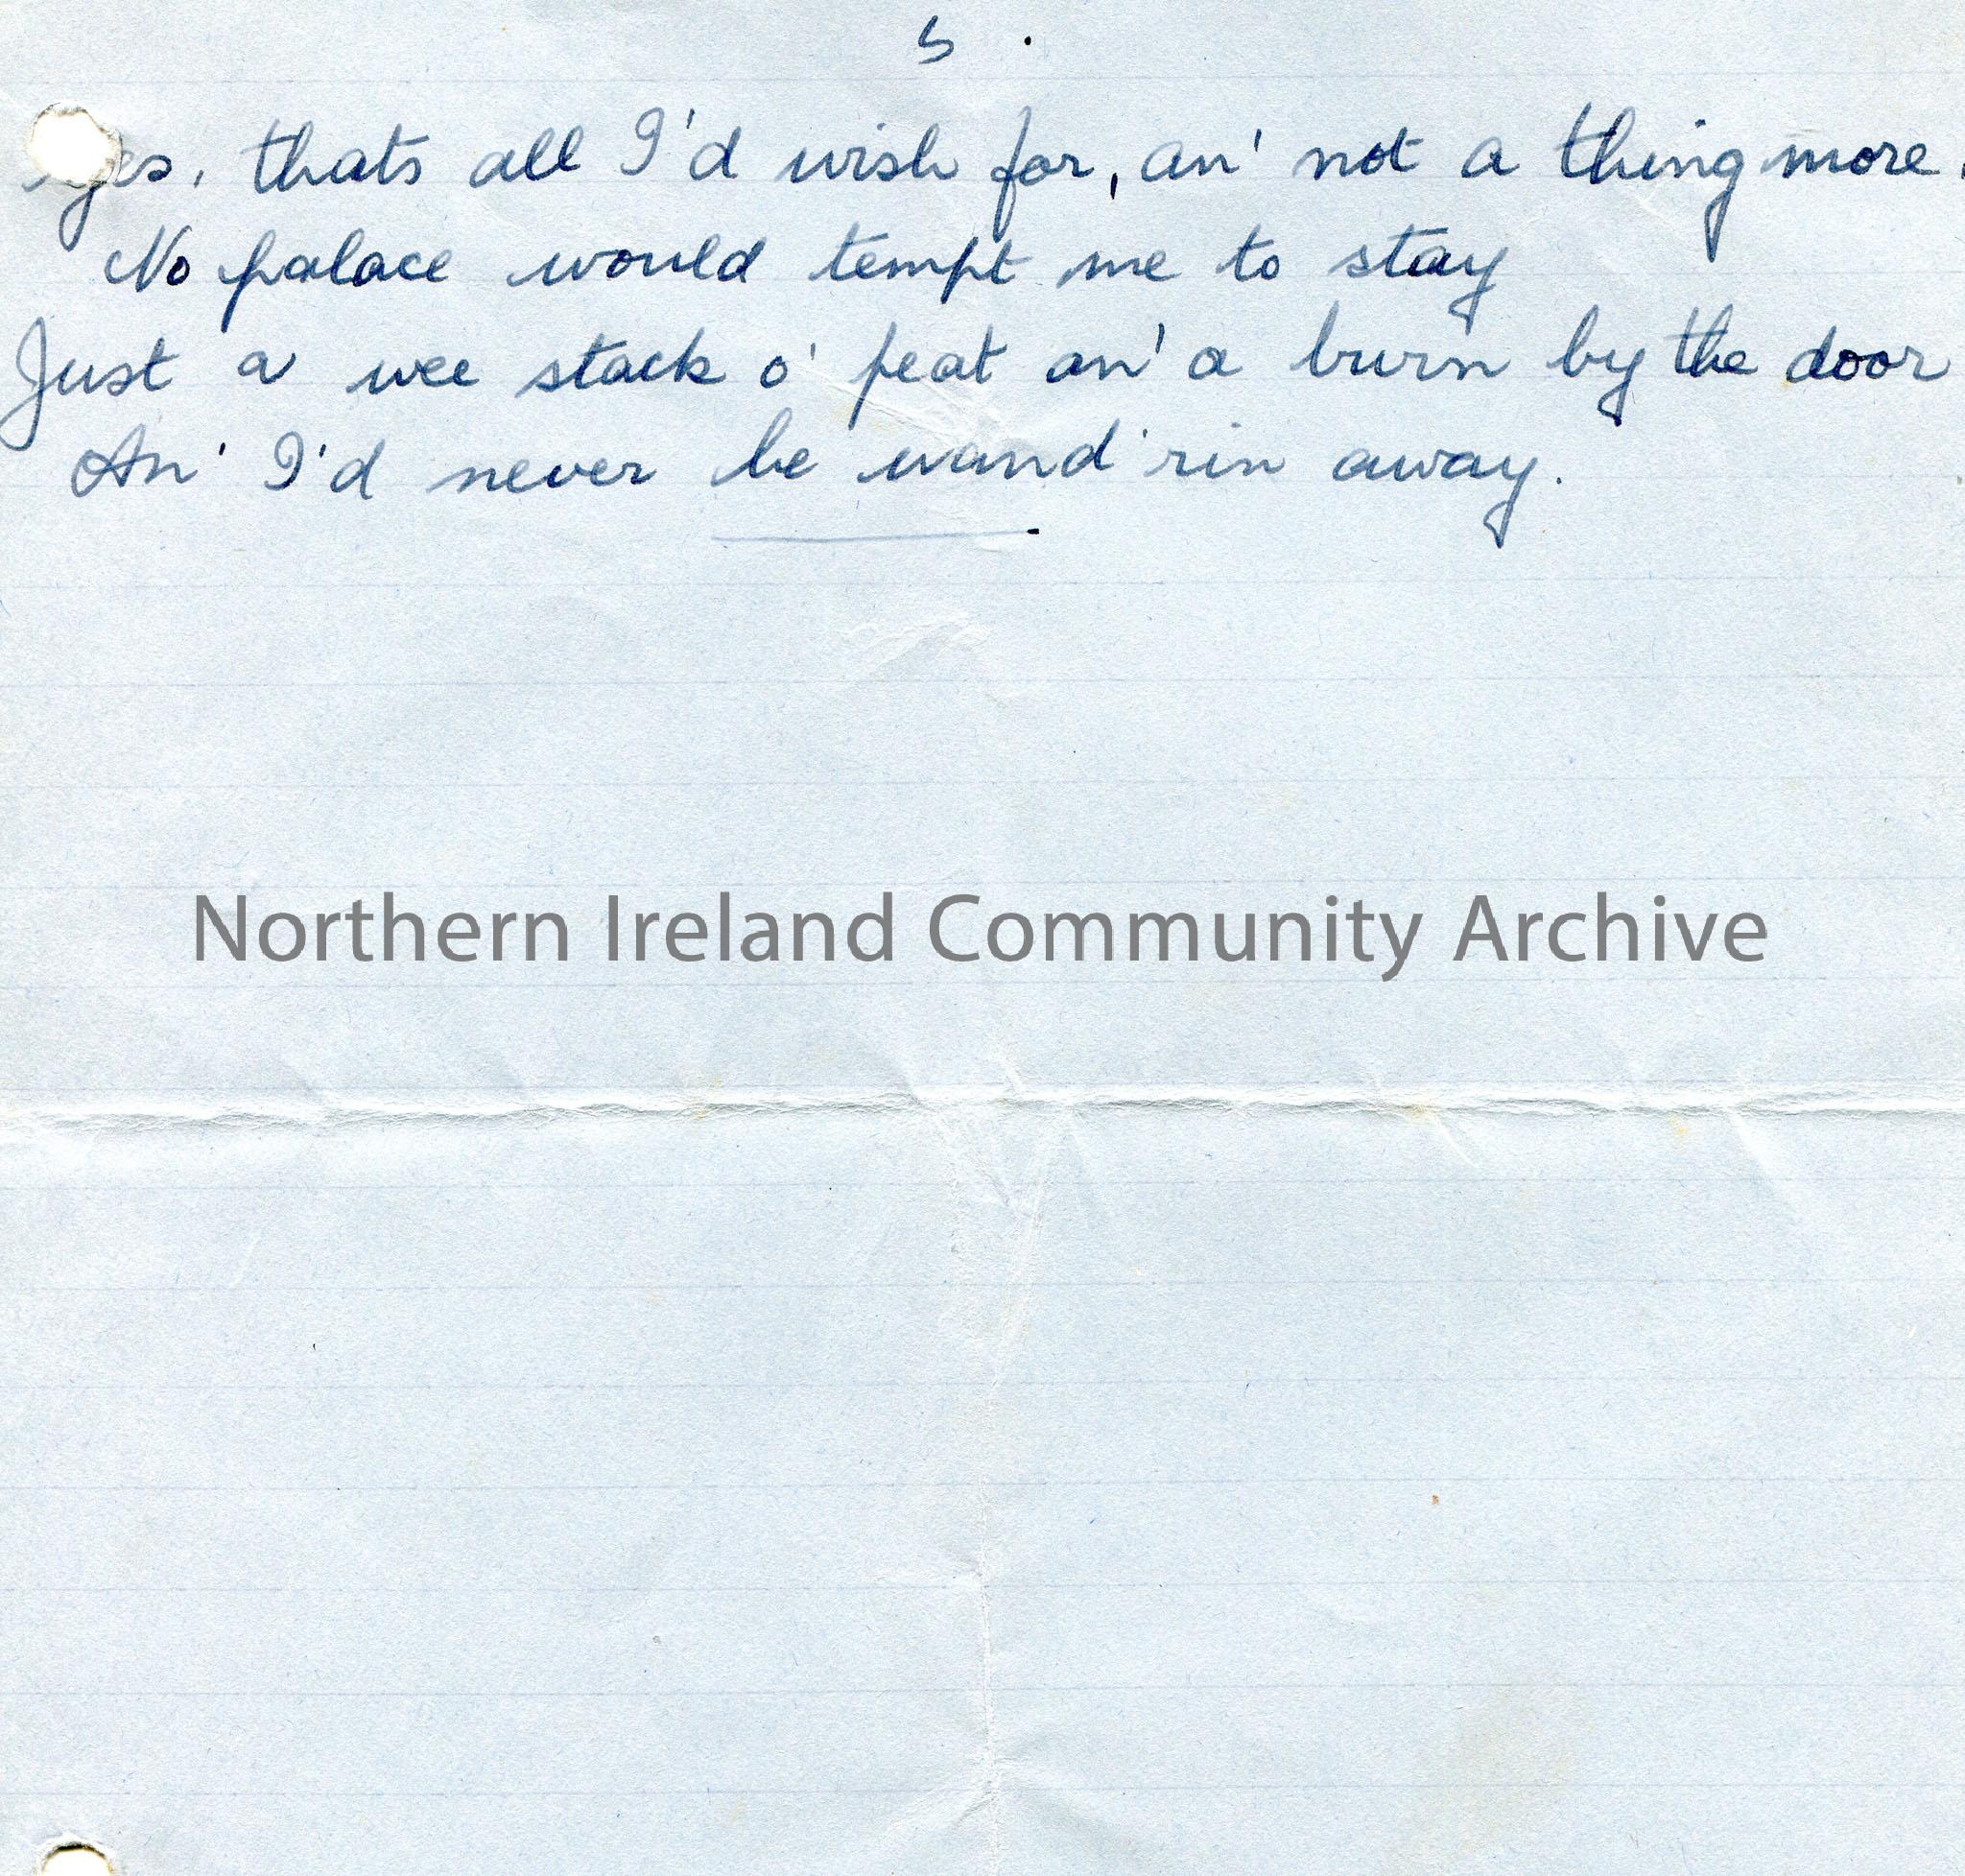 5.
Yes, thats all I'd wish for, an' not a thing more.
No palace would tempt me to stay
Just a wee stack o' peat an' a burn by the door
An' I'd never be wand'rin away.
Northern Ireland Community Archive